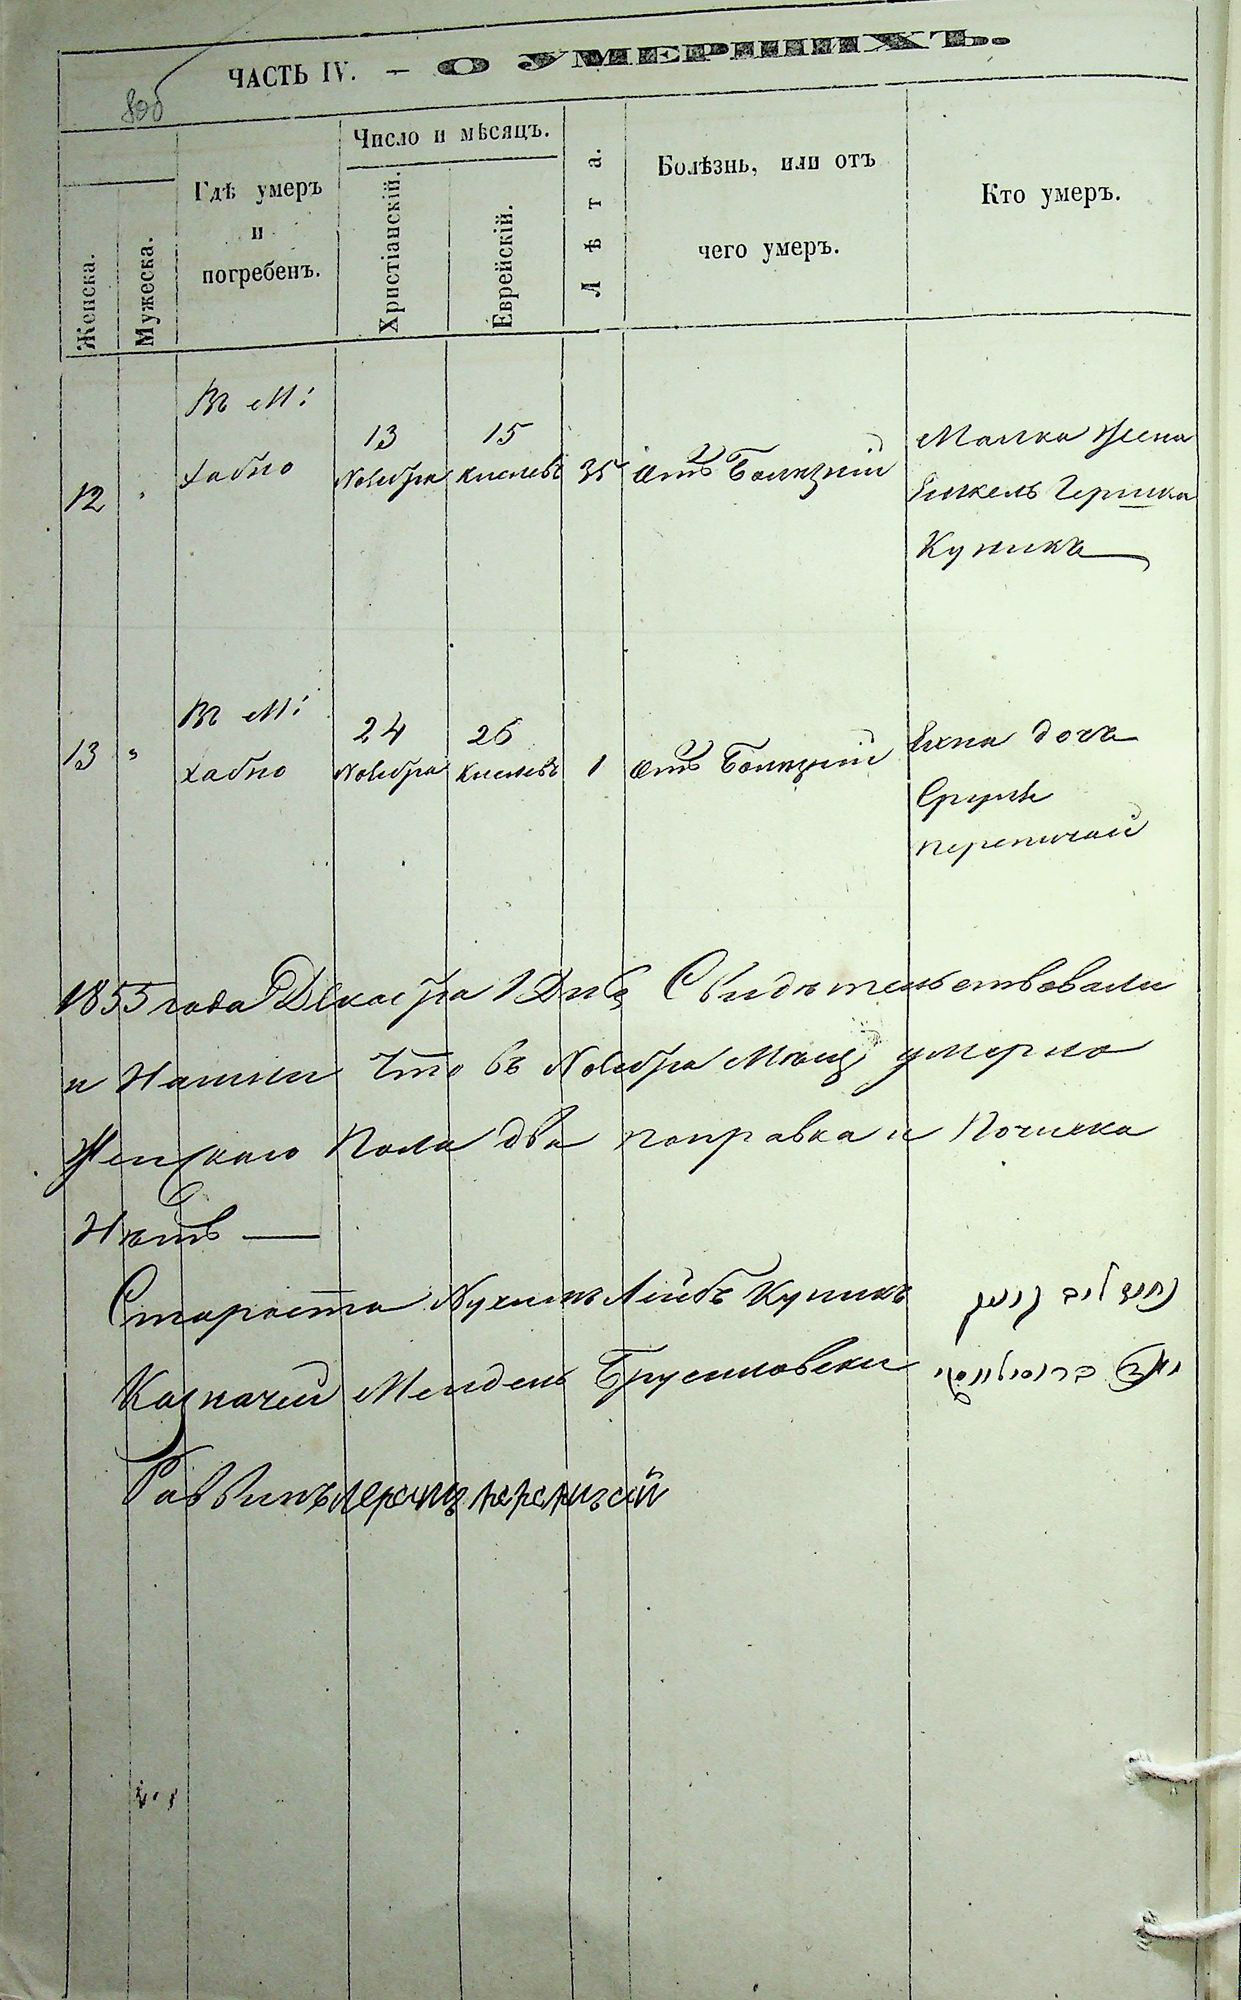 ЧАСТЬ IV. — О УМЕРШИХЪ.
Женска.
Мужеска.
Гдѣ умеръ
и
погребенъ.
Число и мѣсяцъ.
Христіанскій.
Еврейскій.
Лѣта.
Болѣзнь, или отъ
чего умеръ.
Кто умеръ.
Въ М:
Хабно
13
Ноября
15
Кислевъ
12
35
Отъ Болѣзній
Малка Жена
Гершка
Купикъ
Въ М:
Хабно
24
Ноября
26
Кислевъ
13
1
Отъ Болѣзній
Сруля
Перепичай
1855 года Декабря 1 Дня Свидѣтельствовали
и Нашли Что въ Ноября Мѣсц умерло
Женскаго Пола два поправка и Почистка
Нѣтъ —
Староста Нухимъ Лейбъ Купикъ
נחום ליב קופיק
Казначей Мендель Брусиловски
ברוסילווסקי
Раввинъ